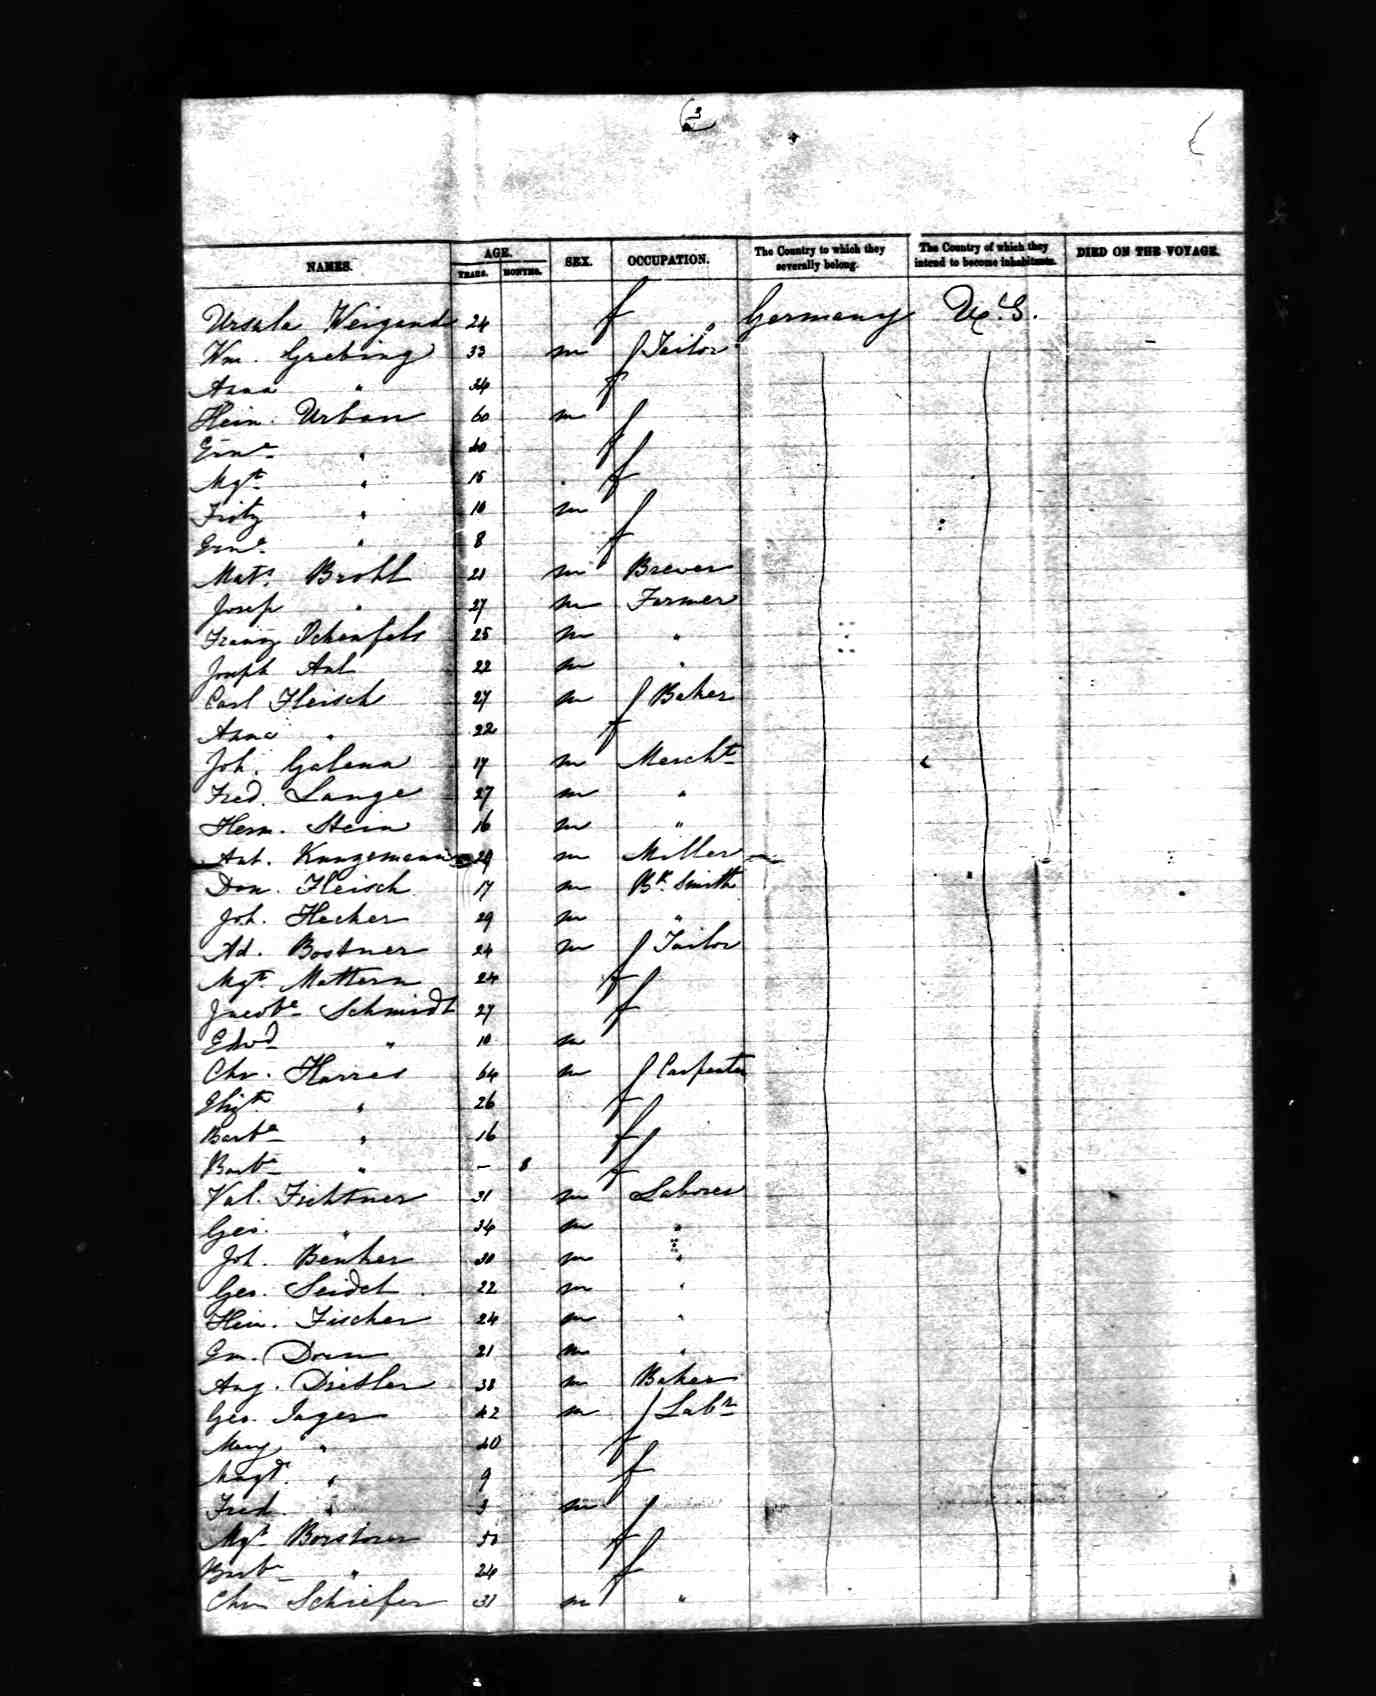 2
NAMES. AGE. SEX. OCCUPATION. The Country to which they severally belong. The Country of which they intend to become inhabitants. DIED ON THE VOYAGE.
YEARS. MONTHS.
Ursula Weigand 24 f Germany U.S.
Wm. Grebing 33 m Tailor
Anna " 34 f
Hein. Urban 60 m
Erne " 40 f
Mgt " 15 f
Fritz " 10 m
Erne " 8 f
Mats Brohl 23 m Brewer
Josep " 27 m Farmer
Franz 25 m "
Joseph 22 m "
Carl Fleisch 27 m Baker
Anna " 22 f
Joh. Galena 17 m Mercht
Fred. Lange 27 m "
Herm. Stein 16 m "
Ant. Kungemann 29 m Miller
Don. Fleisch 17 m Bk. Smith
Joh. Hecker 29 m "
Ad. Bostner 24 m Tailor
Mgt Mattern 24 f
Jacobe Schmidt 27 f
Edwd " 10 m
Chr. Harres 64 m Carpenter
Elizth " 26 f
Barba " 16 f
Barba " – 8 f
Val. Fichtner 31 m Laborer
Geo. " 34 m "
Joh. Benker 30 m "
Geo. Seidel 22 m "
Hein. Fischer 24 m "
Em. Dorn 21 m "
Aug. Distler 38 m Baker
Geo. Jager 42 m Labr
Mary " 40 f
Magd. " 9 f
Fred. " 3 m
Mgt 50 f
Barba " 24 f
Chr Schiefer 31 m "